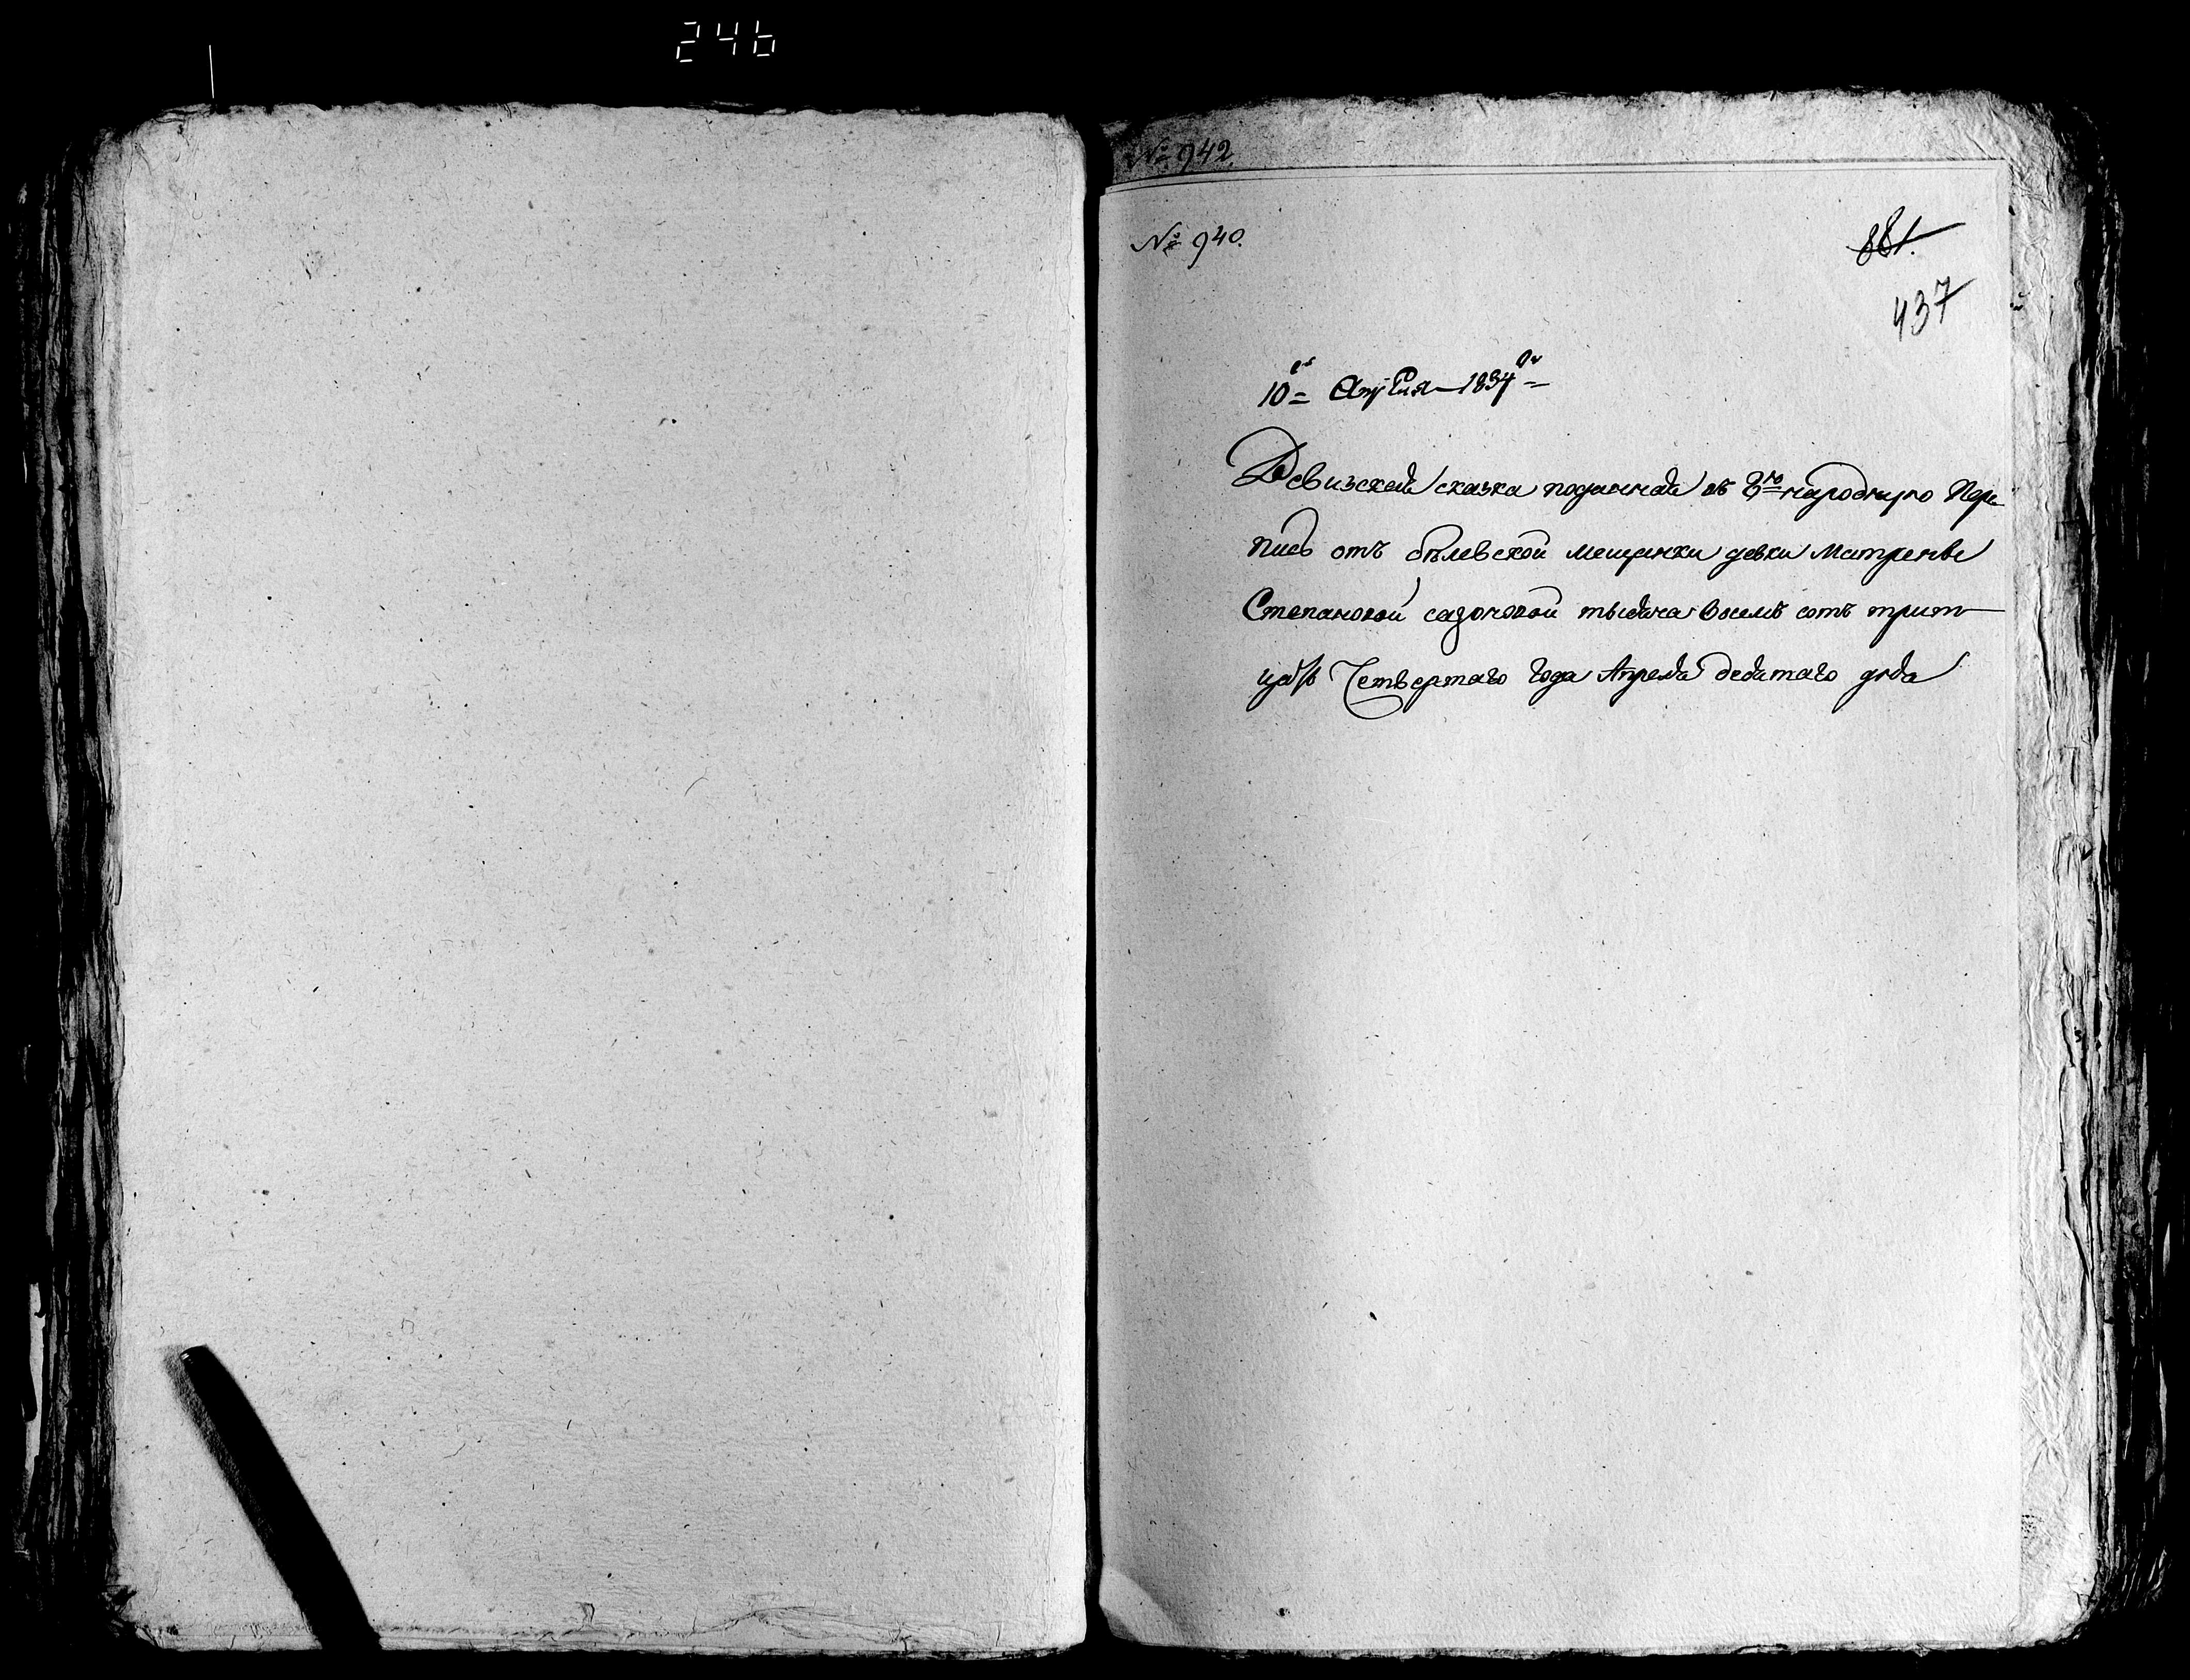 246
№ 942.
№ 940.
881.
437
10го Апреля 1834го
Ревизская сказка поданная въ 8ю народную Пере
пись отъ белевской мещанки девки Матрены
Степановой сазоновой тысяча восемь сотъ трит
цать Четвертаго года Апреля десятаго дня